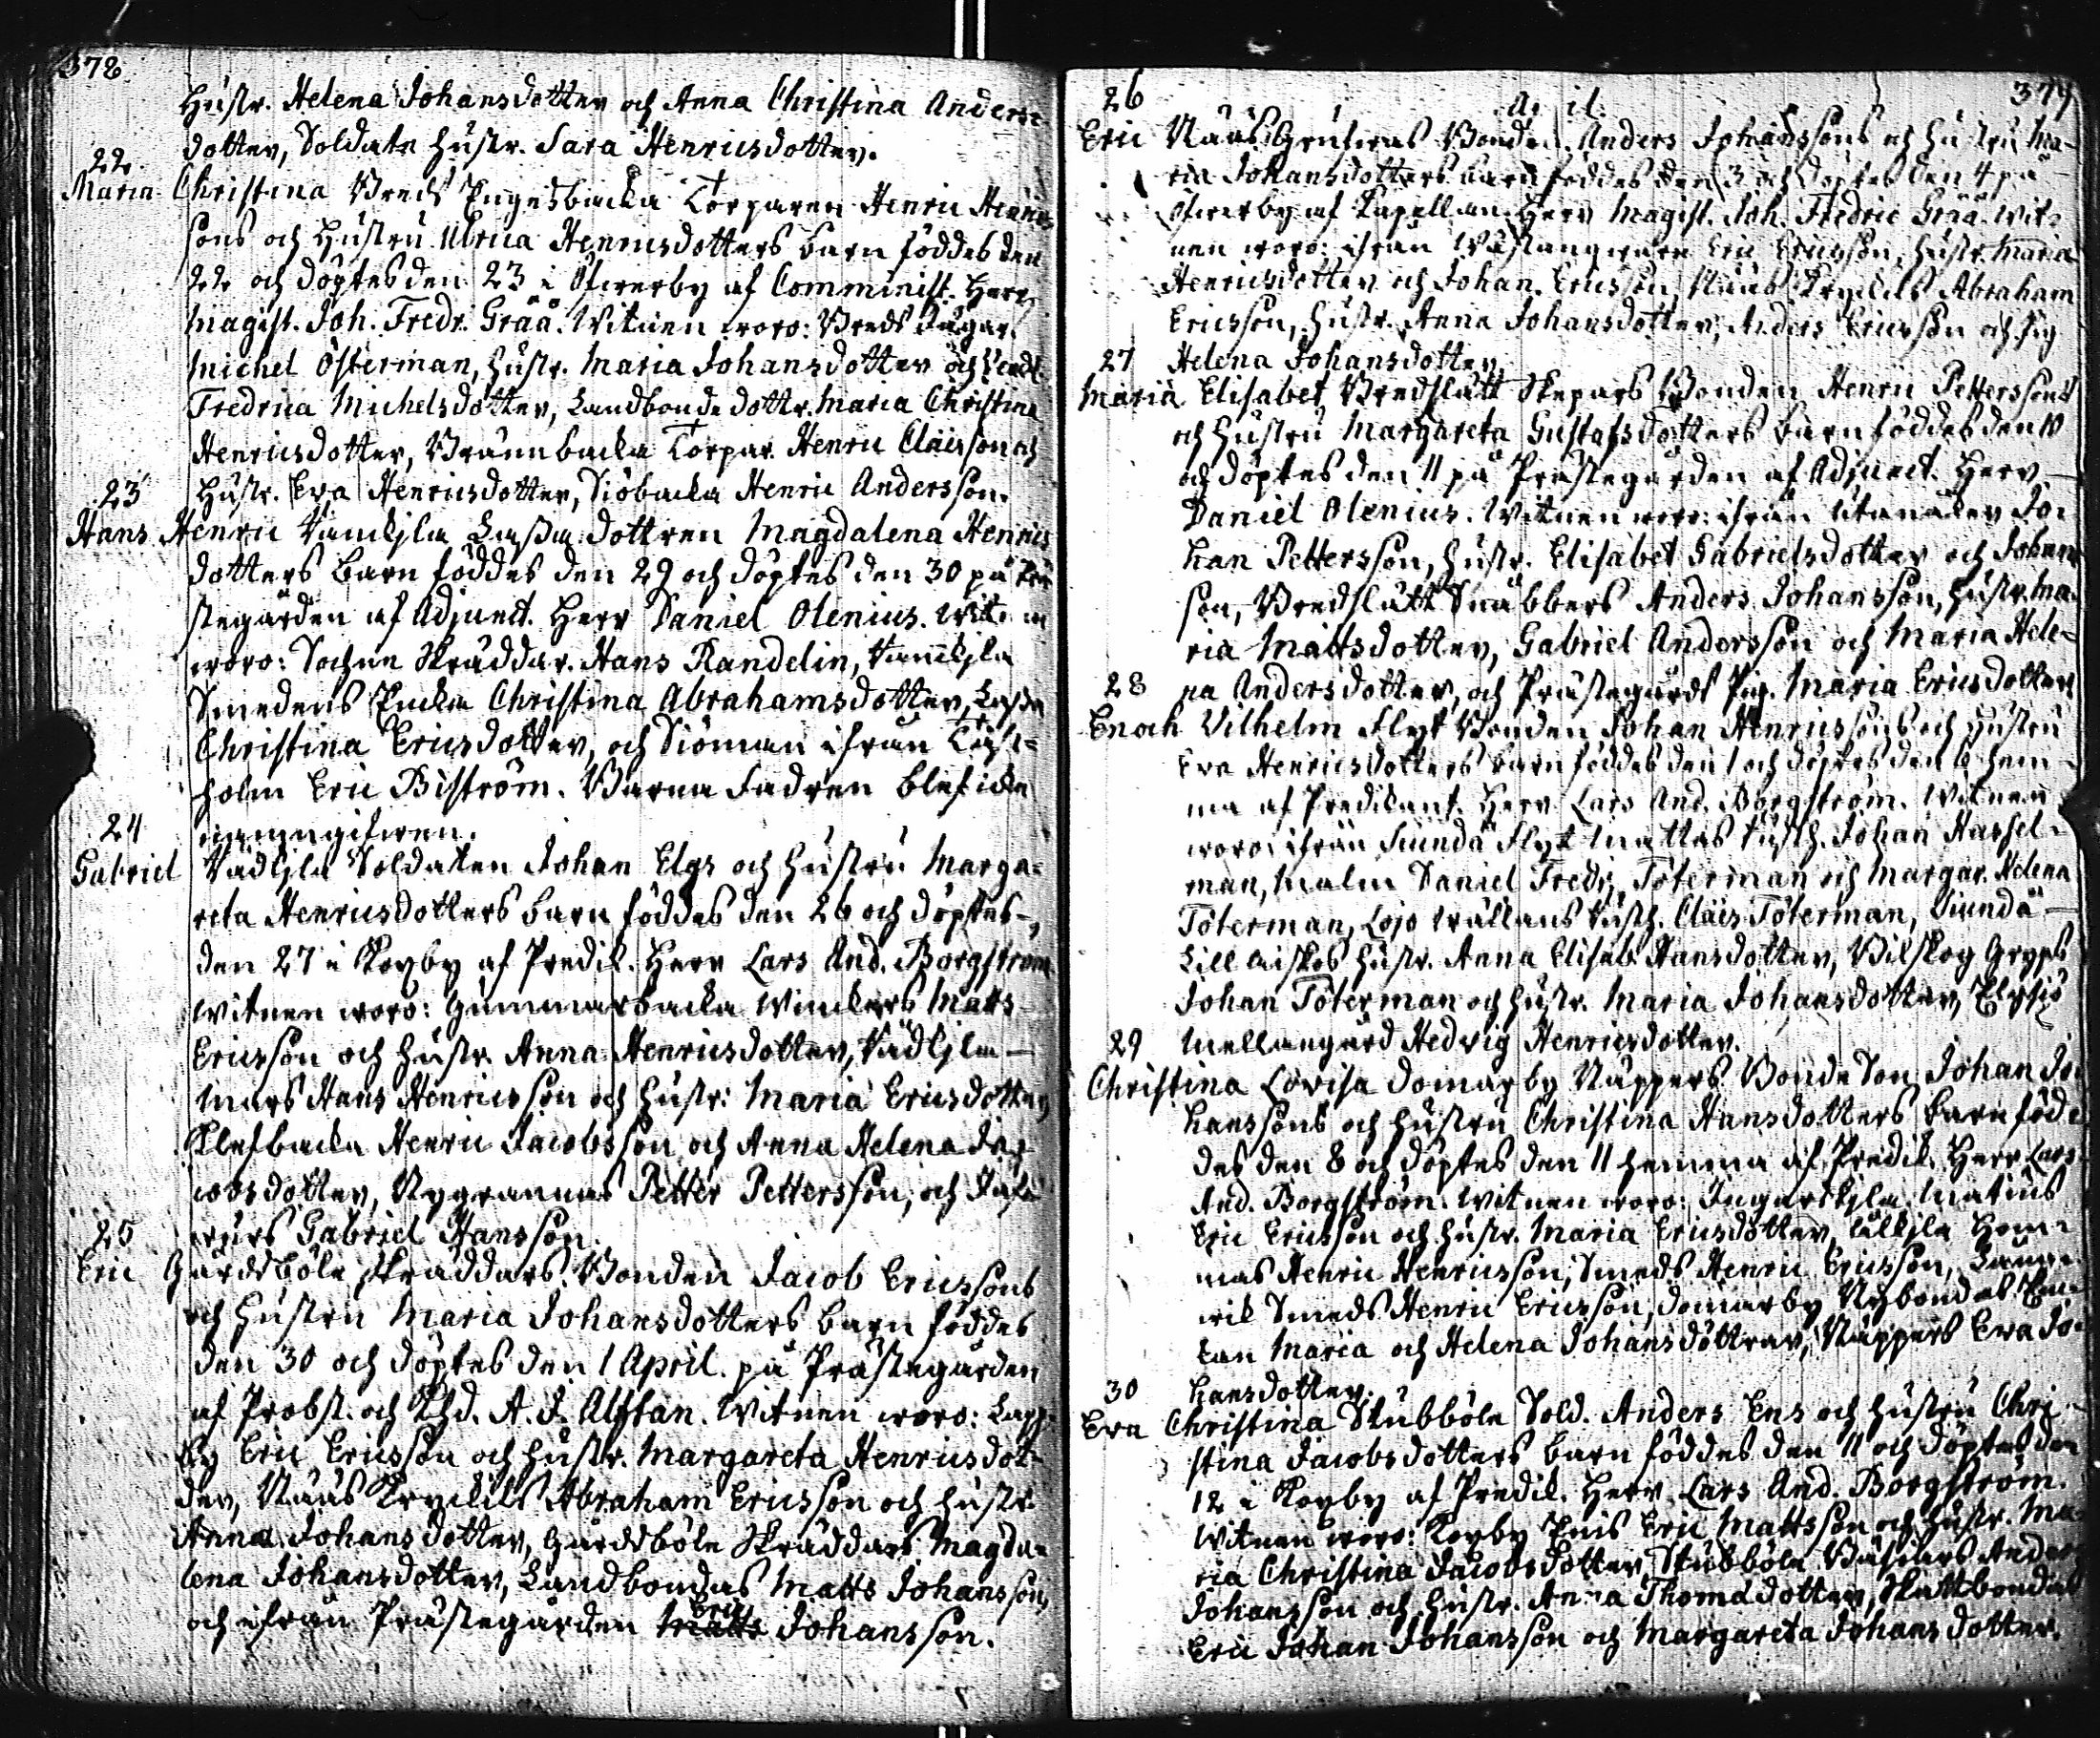 378
Hustr. Helena Johansdotter och Anna Christina Anders-
dotter, Soldats Hustr. Sara Henricsdotter.
22
Maria Christina Breds Ingesbacka Torparen Henric Henrics
sons och Hustru Ulrica Henricsdotters barn föddes den
22 och döptes den 23 i Öfwerby af Comminist. Herr
Magist. Joh. Fredr. Gråå. Witnen woro: Breds
Michel Österman, Hustr. Maria Johansdotter och
Fredrica Michelsdotter, Landbonde dottr. Maria Christina
Henricsdotter, Brännbacka Torpar. Henric Claësson och
Hustr. Eva Henricsdotter, Siöbacka Henric Andersson.
23
Hans Henric Dottren Magdalena Henrics
dotters barn föddes den 29 och döptes den 30 på Prä
stegården af Adjunct. Herr Daniel Olenius. Witnen
woro: Sochne Skräddar. Hans Randelin,
Smedens Enkia Christina Abrahamsdotter,
Christina Ericsdotter, och Siöman ifrån
holm Eric Biström. Barna Fadren blef icke
namngifwen.
24
Gabriel Soldaten Johan Elgs och Hustru Marga-
reta Henricsdotters barn föddes den 26 och döptes
den 27 i Kopby af Predik. Herr Lars And. Borgström
Witnen woro: Gunnarsbacka Winckers Matts
Ericsson och Hustr. Anna Henricsdotter,
Mars Hans Henricsson och Hustr: Maria Ericsdotter
Klefbacka Henric Jacobsson och Anna Helena Ja-
cobsdotter, Nygrannas Petter Pettersson, och
Gabriel Hansson.
25
Eric Gårdsböle Skräddars Bonden Jacob Ericssons
och Hustru Maria Johansdotters barn föddes
den 30 och döptes den 1 April. på Prästegården
af Probst. och Khd. A. J. Alftan. Witnen woro: Lapp-
by Eric Ericsson och Hustr. Margareta Henricsdot-
ter, Näås Krykils Abraham Ericsson och Hustr.
Anna Johansdotter, Gårdsböle Skräddars Magda-
lena Johansdotter, Landbondas Matts Johansson,
Eric
och ifrån Prästegården Matts Johansson.
26
379
April.
Eric Näås Grufwas Bonden Anders Johanssons och Hustru Ma-
ria Johansdotters barn föddes den 3 och döptes den 4 på
Öfwerby af Capellan. Herr Magist. Joh. Fredric Gråå. Wit-
nen woro: ifrån Eric Ericsson, Hustr. Maria
Henricsdotter och Johan Ericsson, Näås Krykils Abraham
Ericsson, Hustr. Anna Johansdotter, Anders Ericsson och Pig.
Helena Johansdotter.
27
Maria Elisabet Bredslätt Skepars Bonden Henric Petterssons
och Hustru Margareta Gustafsdotters barn föddes den 10
och döptes den 11 på Prästegården af Adjunct. Herr
Daniel Olenius. Witnen woro: ifrån Utanåker Jo-
han Pettersson, Hustr. Elisabet Gabrielsdotter och Johans
son, Bredslätt Snåbbers Anders Johansson, Hustr. Ma-
ria Mattsdotter, Gabriel Andersson och Maria Hele-
na Andersdotter, och Prästegårds Pig. Maria Ericsdotter
28
Enoch Vilhelm Flyt Bonden Johan Henricssons och Hustru
Eva Henricsdotters barn föddes den 1 och döptes den 6 hem-
ma af Predikant. Herr Lars And. Borgström. Witnen
woro: ifrån Siundå Flyt Mattas Johan Hassel-
man, Malm Daniel Fredr. Töterman och Margar. Helena
Töterman, Lojo Claës Töterman, Siundå
Lill Hustr. Anna Elisab. Hansdotter, Bilskog Gryps
Johan Töterman och Hustr. Maria Johansdotter,
Mellangård Hedvig Henricsdotter.
29
Christina Lovisa Domarby Näppers Bonde Son Johan Jo-
hanssons och Hustru Christina Hansdotters barn föd-
des den 8 och döptes den 11 hemma af Predik. Herr Lars
And. Borgström. Witnen woro: Ingarskjla Matius
Eric Ericsson och Hustr. Maria Ericsdotter, Hom-
mas Henric Henricsson, Smeds Henric Ericsson,
wik Smeds Henric Ericsson, Domarby Nybondas En-
kan Maria och Helena Johansdöttrar, Näppers Eva Jo-
hansdotter.
30
Eva Christina Stubböle Sold. Anders Ens och Hustru Chri-
stina Jacobsdotters barn föddes den 11 och döptes den
12 i Kopby af Predik. Herr Lars And. Borgström.
Witnen woro: Kopby Eric Mattsson och Hustr. Ma-
ria Christina Jacobsdotter, Stubböle Anders
Johansson och Hustr. Anna Thomædotter, Skattbondas
Eric Johan Johansson och Margareta Johansdotter.